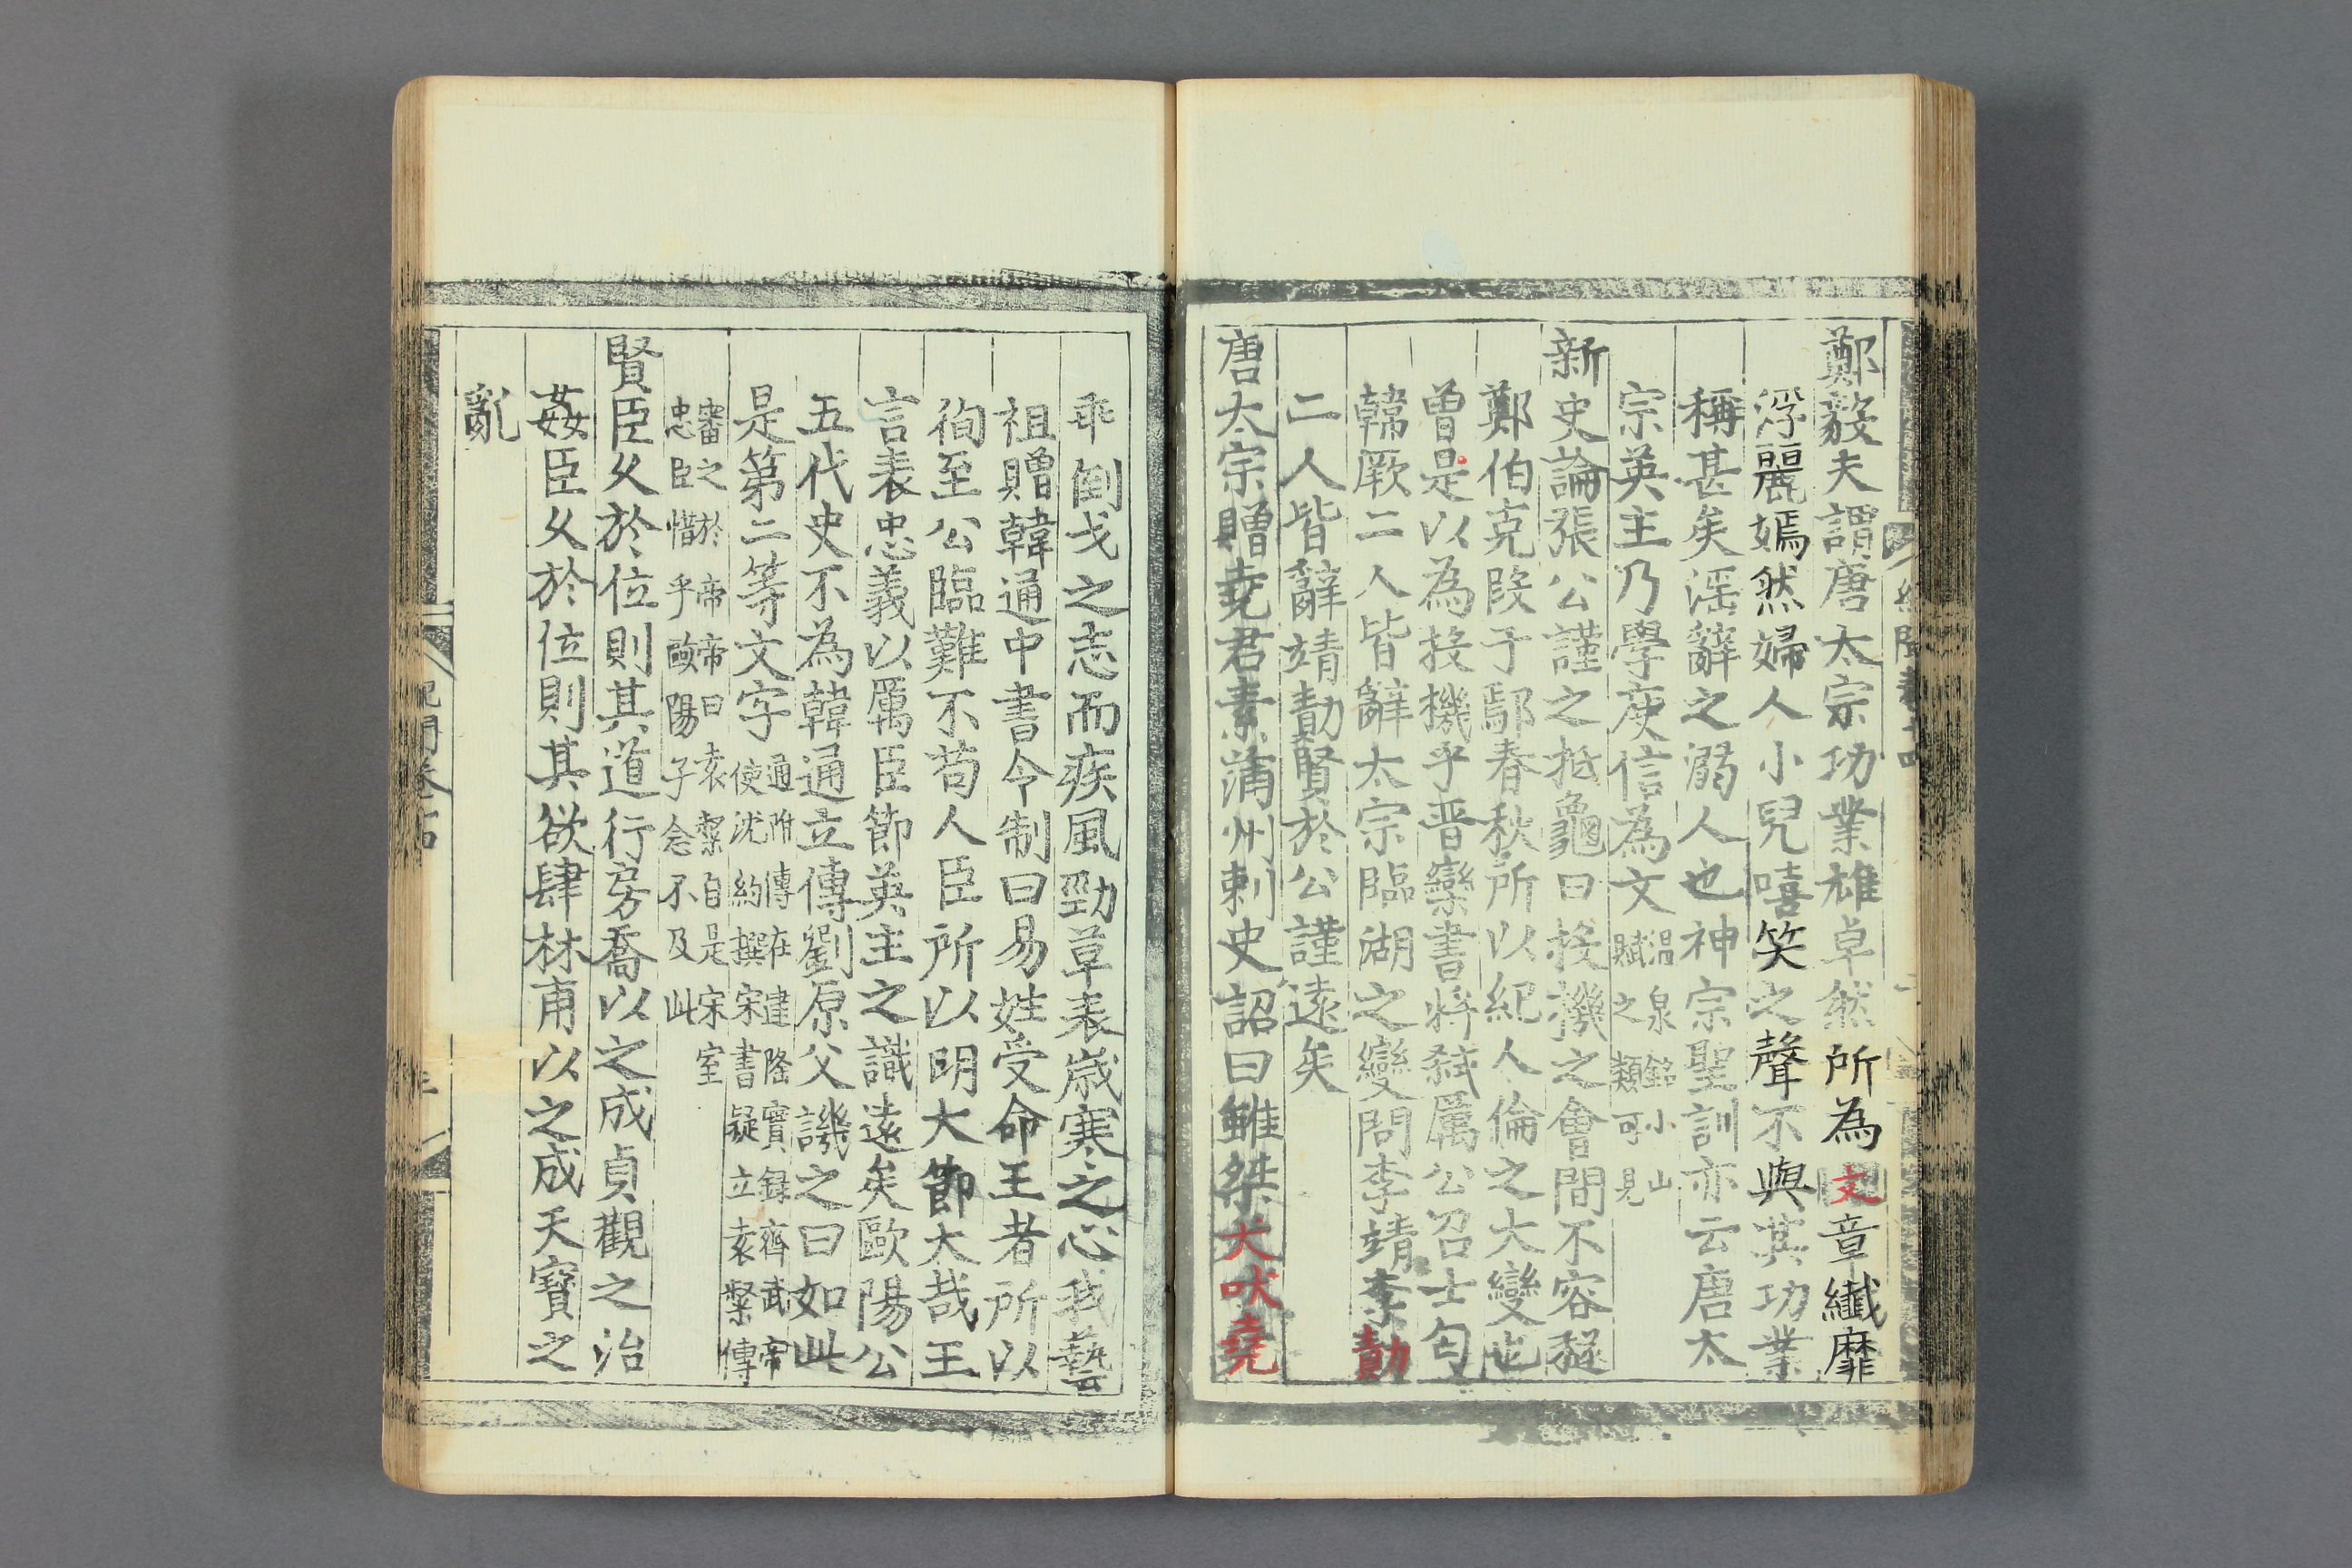 鄭毅夫謂唐太宗功業雄卓然所為文章纖靡
浮麗嫣然婦人小兒嘻笑之聲不與其功業
稱甚矣淫辭之溺人也神宗聖訓亦云唐太
宗英主乃學庾信為文溫泉銘小山
賦之類可見
新史論張公謹之抵龜曰投機之會間不容䊷
鄭伯克段于鄢春秋所以紀人倫之大變也
曾是以為投機乎晉欒書將弒厲公召士匄
韓厥二人皆辭太宗臨湖之變問李靖李勣
二人皆辭靖勣賢於公謹遠矣
唐太宗贈堯君素蒲州刺史詔曰雖桀犬吠堯
乖倒戈之志而疾風勁草表歲寒之心我藝
祖贈韓通中書令制曰易姓受命王者所以
徇至公臨難不苟人臣所以明大節大哉王
言表忠義以厲臣節英主之識遠矣歐陽公
五代史不為韓通立傳劉原父譏之曰如此
是第二等文字通附傳在建隆實錄齊武帝
使沈約撰宋書疑立袁粲傳
審之於帝帝曰袁粲自是宋室
忠臣惜乎歐陽子念不及此
賢臣久於位則其道行房喬以之成貞觀之治
姦臣久於位則其欲肆林甫以之成天寶之
亂